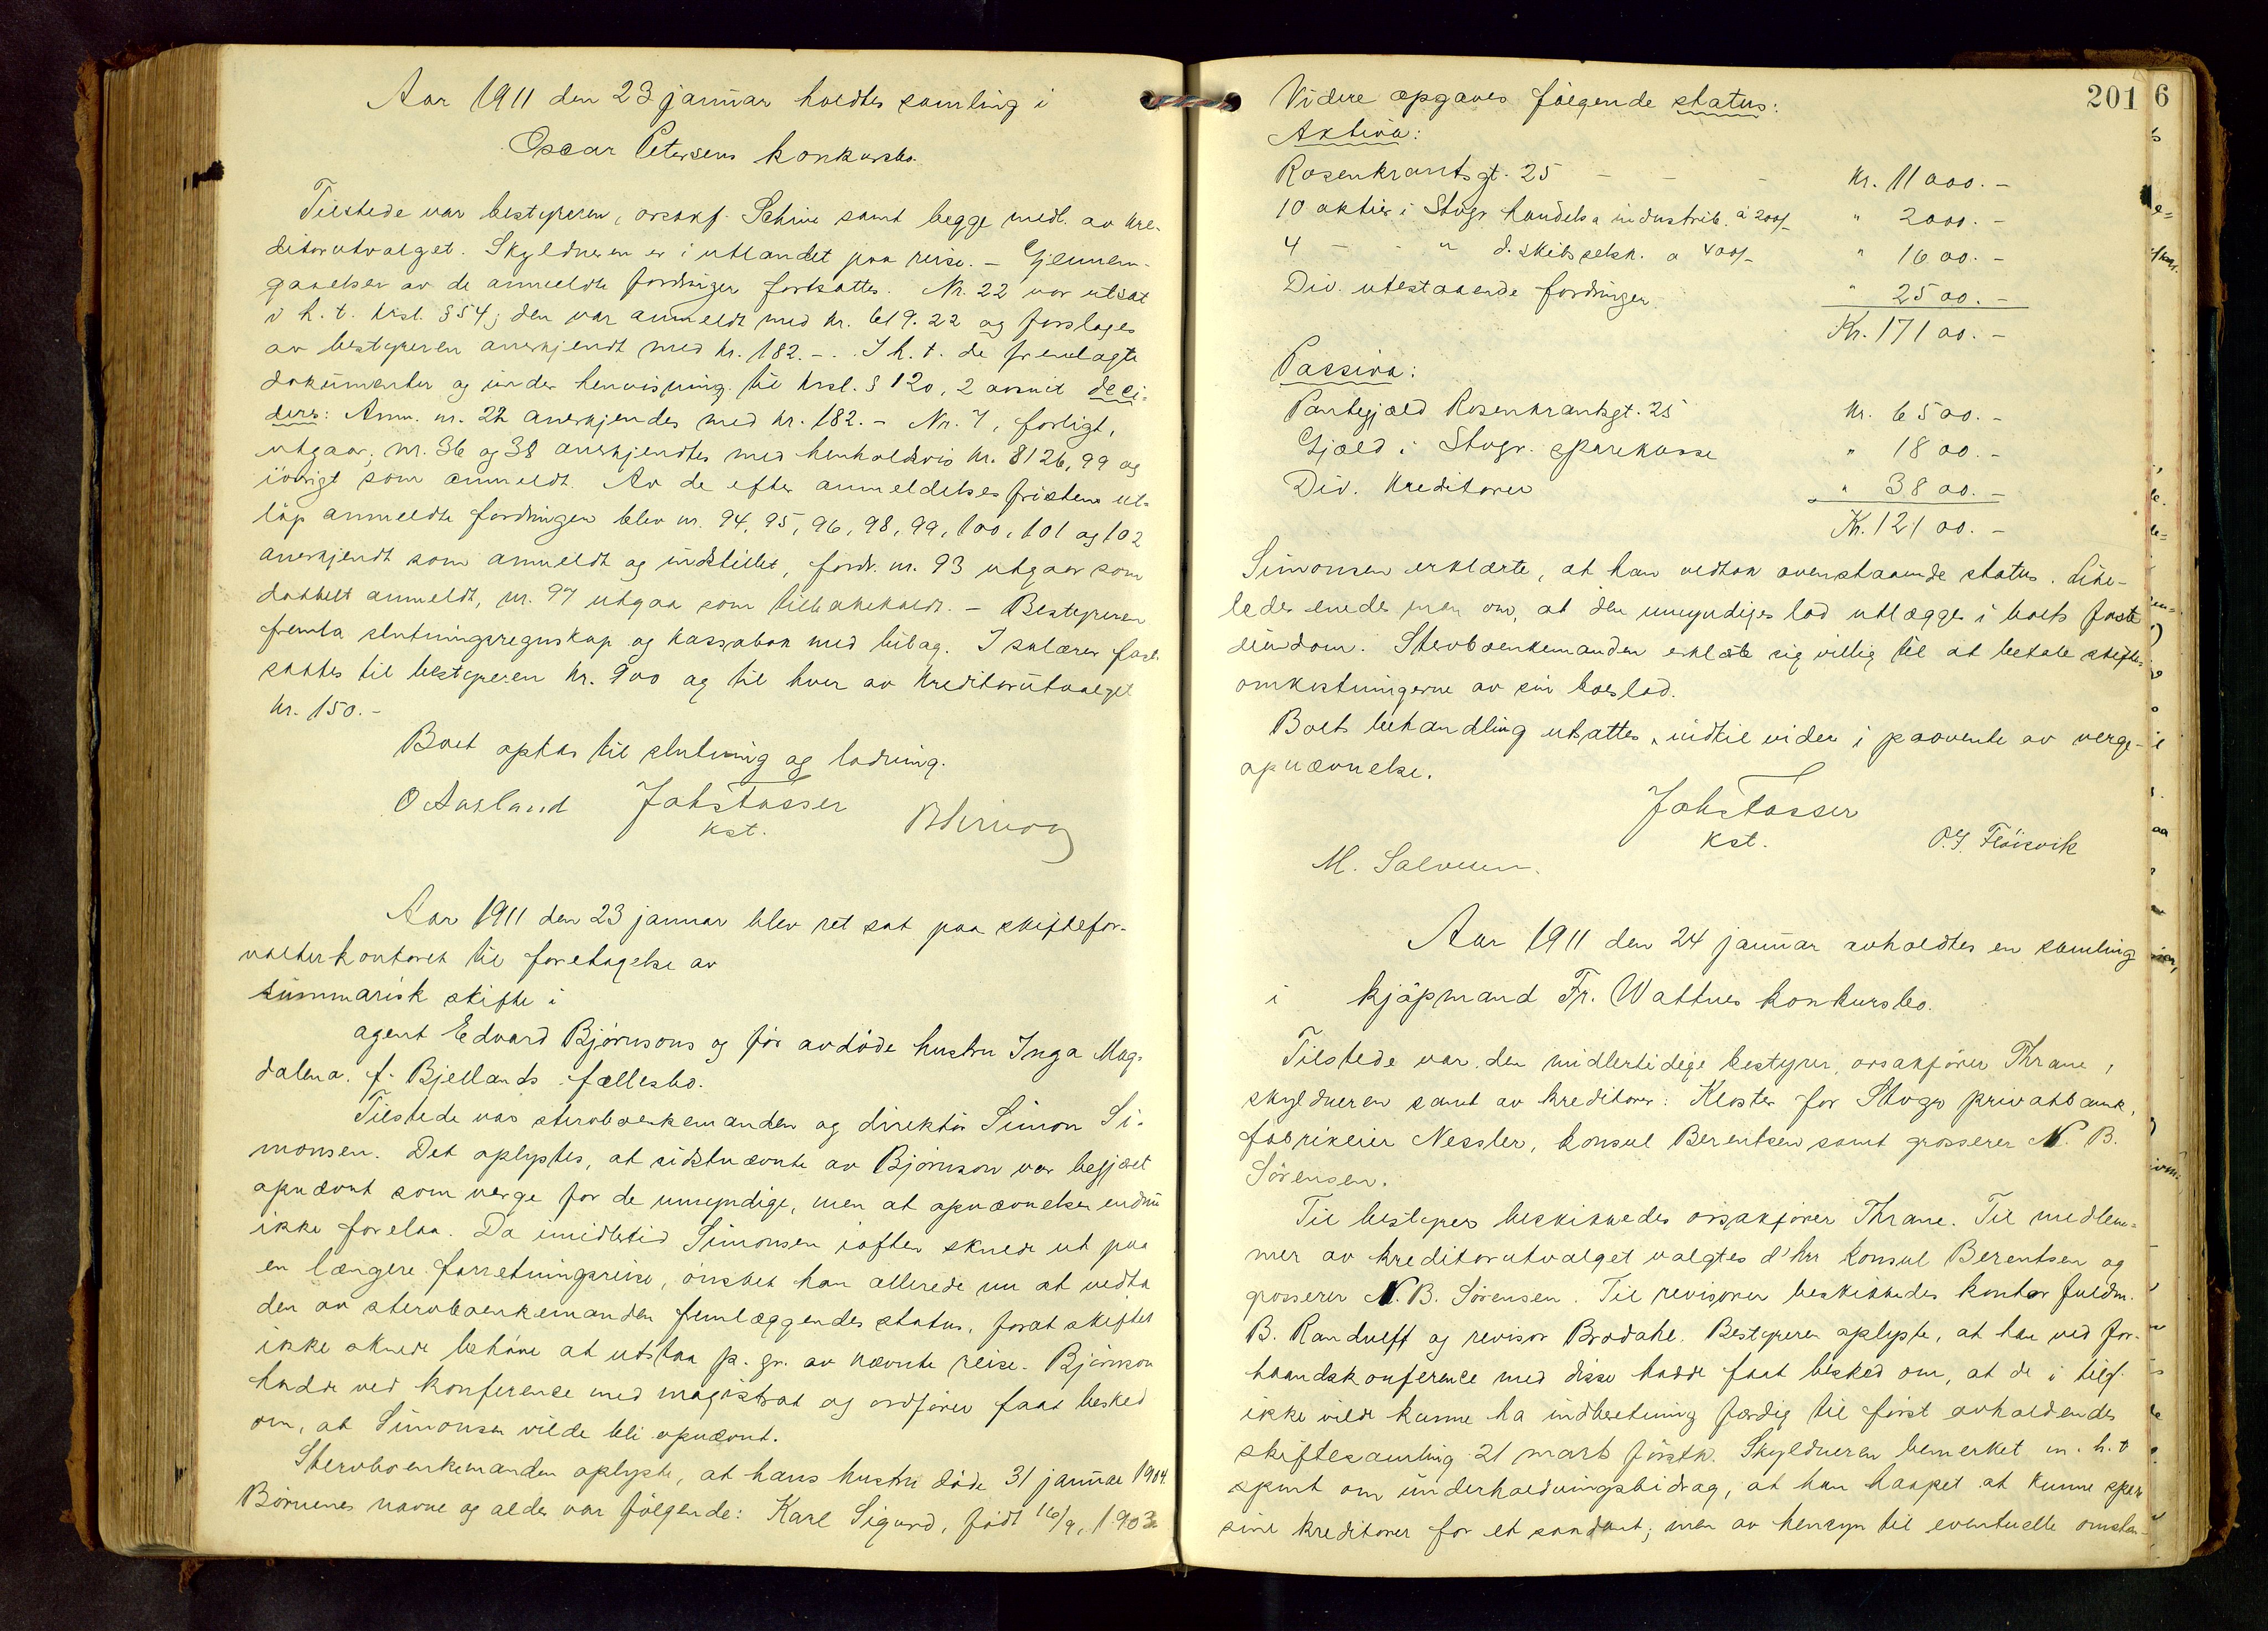 Aar 1911 den 23 januar holdtes samling i
Oscar Petersens konkursbo.
Tilstede var bestyreren, orsakf. Schive samt begge medl. av kre-
ditorutvalget. Skyldneren er i utlandet paa reise. – Gjennem-
gaaelsen av de anmeldte fordringer fortsattes. Nr. 22 var utsat
i h. t. krsl. § 54; den var anmeldt med kr. 619.22 og forslages
av bestyreren anerkjendt med kr. 182.-. I h. t. de fremlagte
dokumenter og under henvisning til krsl. § 120, 2 avsnit deci-
deres: Anm. nr. 22 anerkjendes med kr. 182.- Nr. 7, forligt,
utgaar; nr. 36 og 38 anerkjendtes med henholdsvis kr. 8126,99 og
iövrigt som anmeldt. Av de efter anmeldelsesfristens ut-
löp anmeldte fordringer blev nr. 94, 95, 96, 98, 99, 100, 101 og 102
anerkjendt som anmeldt og indstillet, fordr. nr. 93 utgaar som
dobbelt anmeldt, nr. 97 utgaa som tilbakekaldt. – Bestyreren
fremla slutningsregnskap og kassabok med bilag. I salærer fast-
sattes til bestyreren kr. 900 og til hver av kreditorutvalget
kr. 150.-
Boet optas til slutning og lodning.
O Aasland Joh Tasser
kst.
Aar 1911 den 23 januar blev ret sat paa skiftefor-
valterkontoret til foretagelse av
summarisk skifte i
agent Edvard Bjørnsons og før avdöde hustru Inga Mag-
dalena f. Bjellands fællesbo.
Tilstede var stervboenkemanden og direktör Simon Si-
monsen. Det oplystes, at sidstnævnte av Björnson var begjært
opnævnt som verge for de umyndige, men at opnævnelsen endnu
ikke forelaa. Da imidlertid Simonsen iaften skulde ut paa
en længere forretningsreise, önsket han allerede nu at vedta
den av stervboenkemanden fremlæggendes status, forat skiftet
ikke skulde behöve at utstaa p. gr. av nævnte reise. Björnson
hadde ved konference med magistrat og ordförer faat besked
om, at Simonsen vilde bli opnævnt.
Stervboenkemanden oplyste, at hans hustru döde 31 januar 1904.
Börnenes navne og alder var fölgende: Karl Sigurd, født 16/9, 1903
201
6
Videre opgaves fölgende status:
Aktiva:
Rosenkrantsgt. 25 – – – Kr. 11000.-
10 aktier i Stvgr. handels & industrib. à 200/- " 2000.-
4 – - " d. skibsselsk. a 400/- " 1600.-
Div. utestaaende fordringer " 2500.-
Kr. 17100.-
Passiva:
Pantegjæld Rosenkrantsgt. 25 Kr. 6500.-
Gjæld i Stvgr. sparekasse " 1800.-
Div. Kreditorer " 3800.-
Kr. 12100.-
Simonsen erklærte, at han vedtok ovenstaaende status. Like-
ledes enedes man om, at den umyndiges lod utlægges i boets faste
eiendom. Stervboenkemanden erklærte sig villig til at betale skifte-
omkostningerne av sin boeslod.
Boets behandling utsattes indtil videre i paavente av verge-
opnævnelse.
Joh Tasser
kst.
O.G. Flöisvik
M. Salvesen.
Aar 1911 den 24 januar avholdtes en samling
i kjöpmand Fr. Wattnes konkursbo.
Tilstede var den midlertidige bestyrer, orsakförer Thrane,
skyldneren samt av kreditorer: Kloster for Stvgr privatbank,
fabrikeier Nessler, konsul Berentsen samt grosserer N. B.
Sörensen.
Til bestyrer beskikkedes orsakförer Thrane. Til medlem-
mer av kreditorutvalget valgtes d'hrr konsul Berentsen og
grosserer N. B. Sörensen. Til revisorer beskikkedes kontorfuldm.
B. Randulff og revisor Brodahl. Bestyreren oplyste, at han ved for-
haandskonference med disse hadde faat besked om, at de i tilf.
ikke vilde kunne ha indberetning færdig til först avholdendes
skiftesamling 21 marts förstk. Skyldneren bemerket m. h. t
spmt om underholdningsbidrag, at han haapet at kunne spare
sine kreditorer for et saadant; men av hensyn til eventuelle omstæn-